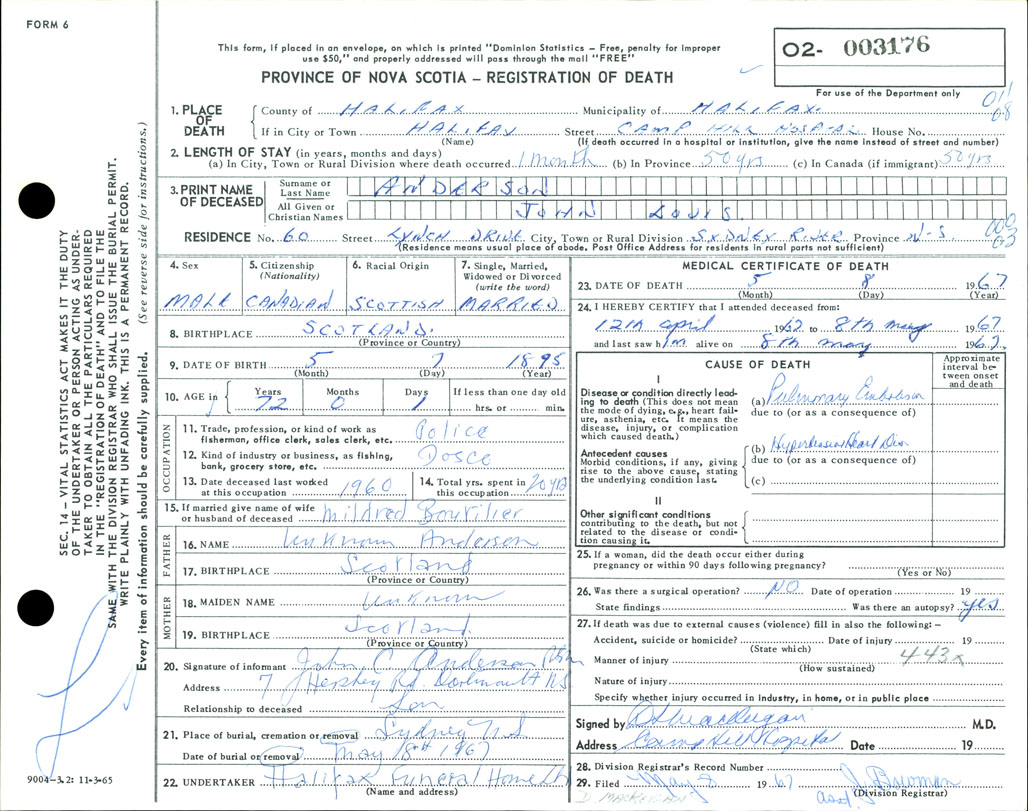 FORM 6
This form, if placed in an envelope, on which is printed "Dominion Statistics – Free, penalty for improper
use $50," and properly addressed will pass through the mail "FREE"
PROVINCE OF NOVA SCOTIA – REGISTRATION OF DEATH
02- 003176
For use of the Department only
SEC. 14 – VITAL STATISTICS ACT MAKES IT THE DUTY
OF THE UNDERTAKER OR PERSON ACTING AS UNDER-
TAKER TO OBTAIN ALL THE PARTICULARS REQUIRED
IN THE "REGISTRATION OF DEATH" AND TO FILE THE
SAME WITH THE DIVISION REGISTRAR WHO SHALL ISSUE THE BURIAL PERMIT.
WRITE PLAINLY WITH UNFADING INK. THIS IS A PERMANENT RECORD.
Every item of information should be carefully supplied. (See reverse side for instructions.)
1. PLACE OF DEATH
County of HALIFAX Municipality of HALIFAX.
If in City or Town HALIFAX Street CAMP HILL HOSPITAL House No.
(Name) (If death occurred in a hospital or institution, give the name instead of street and number)
2. LENGTH OF STAY (in years, months and days)
(a) In City, Town or Rural Division where death occurred 1 month (b) In Province 50 yrs (c) In Canada (if immigrant) 50 yrs
3. PRINT NAME OF DECEASED
Surname or Last Name ANDERSON
All Given or Christian Names JOHN LOUIS.
RESIDENCE No. 60 Street LYNCH DRIVE City, Town or Rural Division SYDNEY RIVER Province N-S
(Residence means usual place of abode. Post Office Address for residents in rural parts not sufficient)
4. Sex MALE
5. Citizenship (Nationality) CANADIAN
6. Racial Origin SCOTTISH
7. Single, Married, Widowed or Divorced (write the word) MARRIED
8. BIRTHPLACE SCOTLAND.
(Province or Country)
9. DATE OF BIRTH 5 7 1895
(Month) (Day) (Year)
10. AGE in Years 72 Months 0 Days 1 If less than one day old
hrs. or min.
OCCUPATION
11. Trade, profession, or kind of work as fisherman, office clerk, sales clerk, etc. Police
12. Kind of industry or business, as fishing, bank, grocery store, etc. Dosco
13. Date deceased last worked at this occupation 1960
14. Total yrs. spent in this occupation 20 yrs
15. If married give name of wife or husband of deceased Mildred Boutilier
FATHER
16. NAME Unknown Anderson
17. BIRTHPLACE Scotland
(Province or Country)
MOTHER
18. MAIDEN NAME Unknown
19. BIRTHPLACE Scotland
(Province or Country)
20. Signature of informant John C Anderson
Address 7 Hershey Rd. Dartmouth NS
Relationship to deceased Son
21. Place of burial, cremation or removal Sydney N.S
Date of burial or removal May 18th 1967
22. UNDERTAKER Halifax Funeral Home
(Name and address)
9004-3.2: 11-3-65
MEDICAL CERTIFICATE OF DEATH
23. DATE OF DEATH 5 8 1967
(Month) (Day) (Year)
24. I HEREBY CERTIFY that I attended deceased from:
12th april 1967 to 8th may 1967
and last saw him alive on 8th may 1967.
CAUSE OF DEATH
Approximate interval between onset and death
I
Disease or condition directly leading to death (This does not mean the mode of dying, e.g., heart failure, asthenia, etc. It means the disease, injury, or complication which caused death.)
(a) Pulmonary Embolism
due to (or as a consequence of)
Antecedent causes
Morbid conditions, if any, giving rise to the above cause, stating the underlying condition last.
(b) Hypertensive Heart Dis
due to (or as a consequence of)
(c)
II
Other significant conditions
contributing to the death, but not related to the disease or condition causing it.
25. If a woman, did the death occur either during
pregnancy or within 90 days following pregnancy?
(Yes or No)
26. Was there a surgical operation? NO Date of operation 19
State findings Was there an autopsy? yes
27. If death was due to external causes (violence) fill in also the following: –
Accident, suicide or homicide? Date of injury 19
(State which)
Manner of injury 443x
(How sustained)
Nature of injury
Specify whether injury occurred in industry, in home, or in public place
Signed by M.D.
Address Camp Hill Hospital Date 19
28. Division Registrar's Record Number
29. Filed May 8 1967 Bowman
(Division Registrar)
D. MACKEIGAN